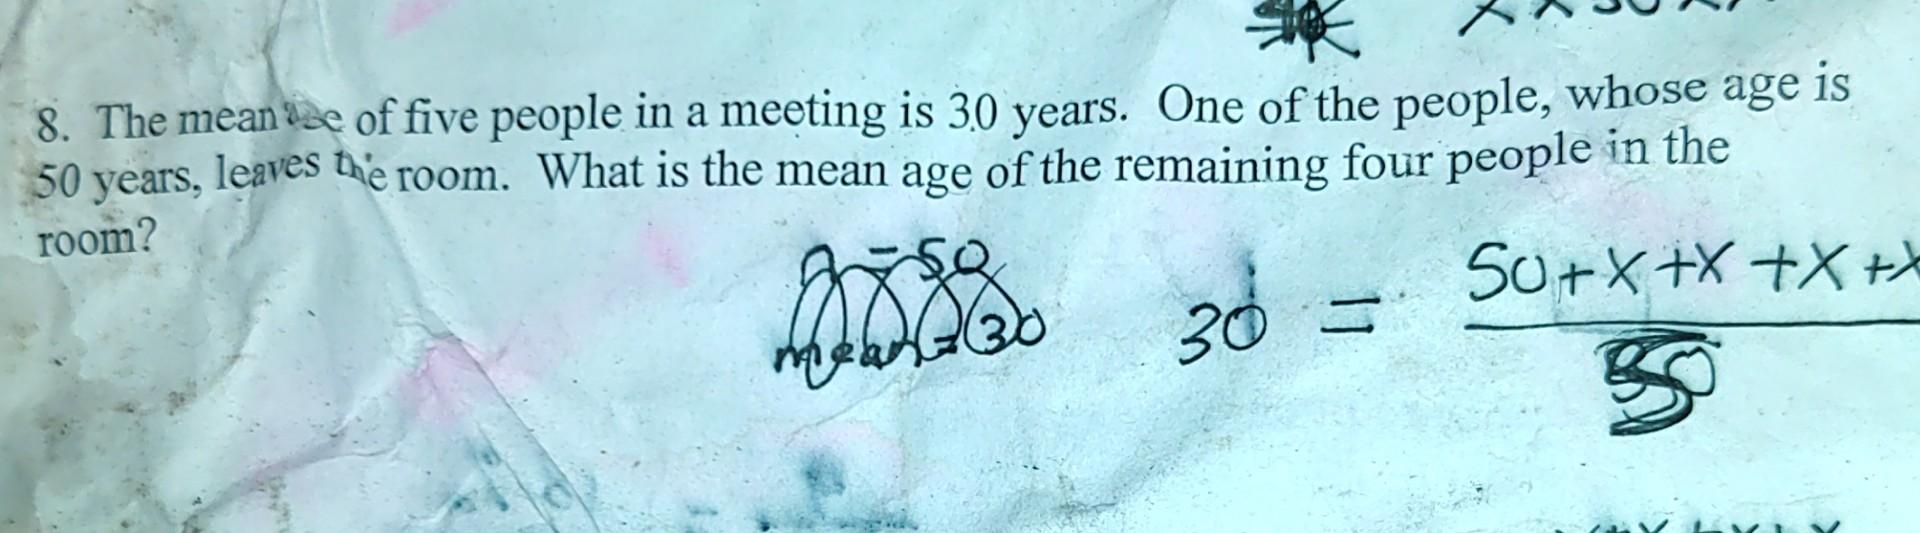 8. The mean of five people in a meeting is 30 years. One of the people, whose age is
50 years, leaves the room. What is the mean age of the remaining four people in the
room?
= 50
mean = 30
30 = 50+x+x+x+x